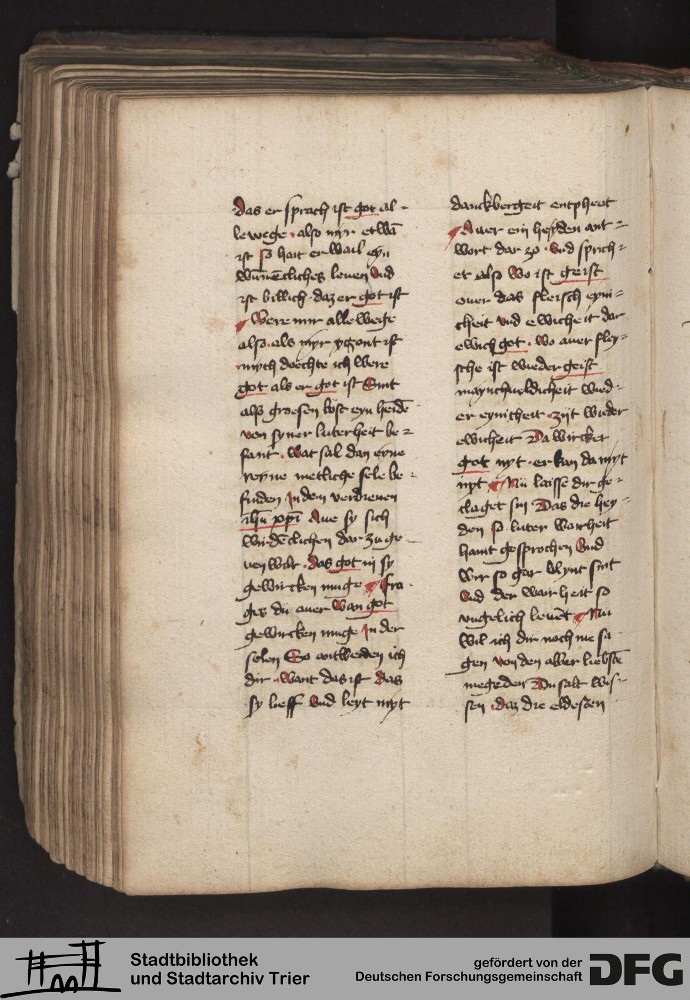 das er sprach ist got al-
lewege. also myr etwā
ist so hait er wail eyn
wūnēcliches leuen vnd
ist billich. daz er got ist
Were mir alle wege
also. als myr yczont ist
mych doechte ich were
got als er got ist Sint
also groesen lost eyn heidē
von syner luterheit be=
fant. wat sal dan eyne
reyne mētliche sele be-
finden in dem verdienen
ih̄u xpī Aue sy sich
wirdēclichen dar zu ge-
uen wilt. das got in sy
gewircken muge fra-
ges du auer wan got
gewircken muge in der
selen So antwerden ich
dir. want das ist das
sy lieff vnd leyt myt
danckbergeit entpheet
Auer ein heyden ant=
wort dar zo. vnd sprich=
et also wo ist geist
ouer das fleisch eyni=
cheit vnd ewicheit dar
ewich got. wo auer fley=
sche ist wieder geist
maynchueldicheit wied-
er eynicheit. zijt wieder
ewicheit Da wircket
got nyt. er kan da myt
nyt Nu laisse dir ge-
claget sin Das die hey-
den so luter wairheit
haint gesprochen vnd
wir so gar blynt sint
vnd der wairheit so
vngelich leuēt Nu
wil ich dir noch me sa-
gen von den aller liebstē
megeden Du salt wis-
sen. daz die eldesten
Stadtbibliothek
und Stadtarchiv Trier
gefördert von der
Deutschen Forschungsgemeinschaft
DFG